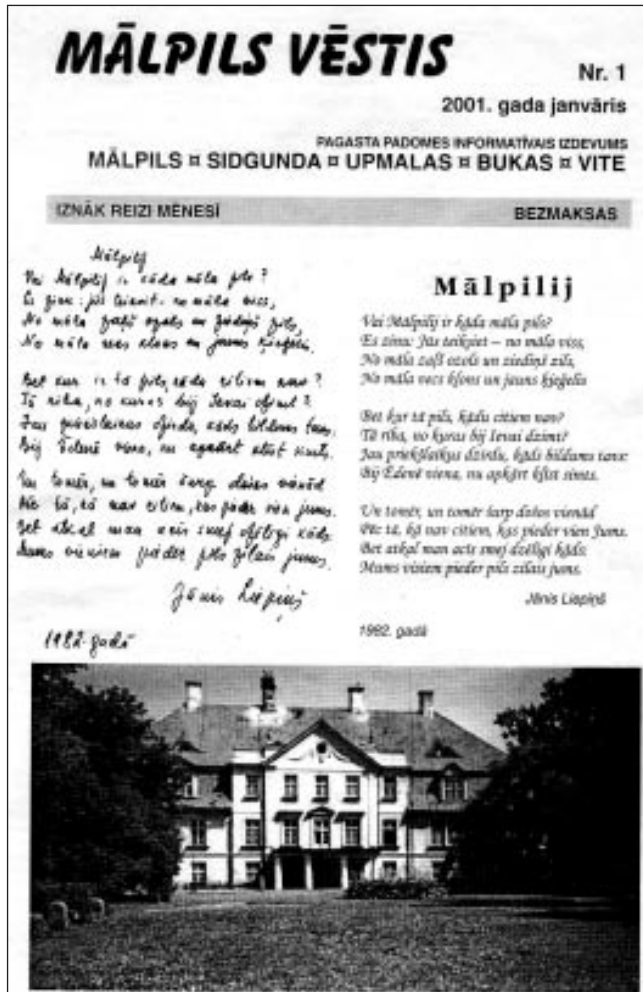 MĀLPILS VĒSTIS
Nr. 1
2001. gada janvāris
PAGASTA PADOMES INFORMATĪVAIS IZDEVUMS
MĀLPILS ¤ SIDGUNDA ¤ UPMALAS ¤ BUKAS ¤ VITE
IZNĀK REIZI MĒNESĪ
BEZMAKSAS
Mālpilij
Vai Mālpilij ir kāda māla pils?
Es zinu: jūs teiksiet - no māla viss,
No māla zaļš ozols un ziediņš zils,
No māla vecs klons un jauns ķieģelis.
Bet kur ir tā pils, kāda citiem nav?
Tā riba, no kuras bij Ievai dzimt?
Jau priekšlaikus dzirdu, kāds bildums tavs:
Bij Ēdenē viena, nu apkārt klīst simts.
Un tomēr, un tomēr šurp dodos vienād
Pēc tā, kā nav citiem, kas pieder vien jums.
Bet atkal man acīs smej dzēlīgi kāds:
Mums visiem pieder pils zilais jums.
Jānis Liepiņš
1982. gadā
Mālpilij
Vai Mālpilij ir kāda māla pils?
Es zinu: Jūs teiksiet – no māla viss,
No māla zaļš ozols un ziediņš zils,
No māla vecs kļons un jauns ķieģelis
Bet kur tā pils, kādu citiem nav?
Tā riba, no kuras bij Ievai dzimt?
Jau priekšlaikus dzirdu, kāds bildums tavs:
Bij Ēdenē viena, nu apkārt klīst simts.
Un tomēr, un tomēr šurp dodos vienād
Pēc tā, kā nav citiem, kas pieder vien Jums.
Bet atkal man acīs smej dzēlīgi kāds:
Mums visiem pieder pils zilais jums.
Jānis Liepiņš
1982. gadā